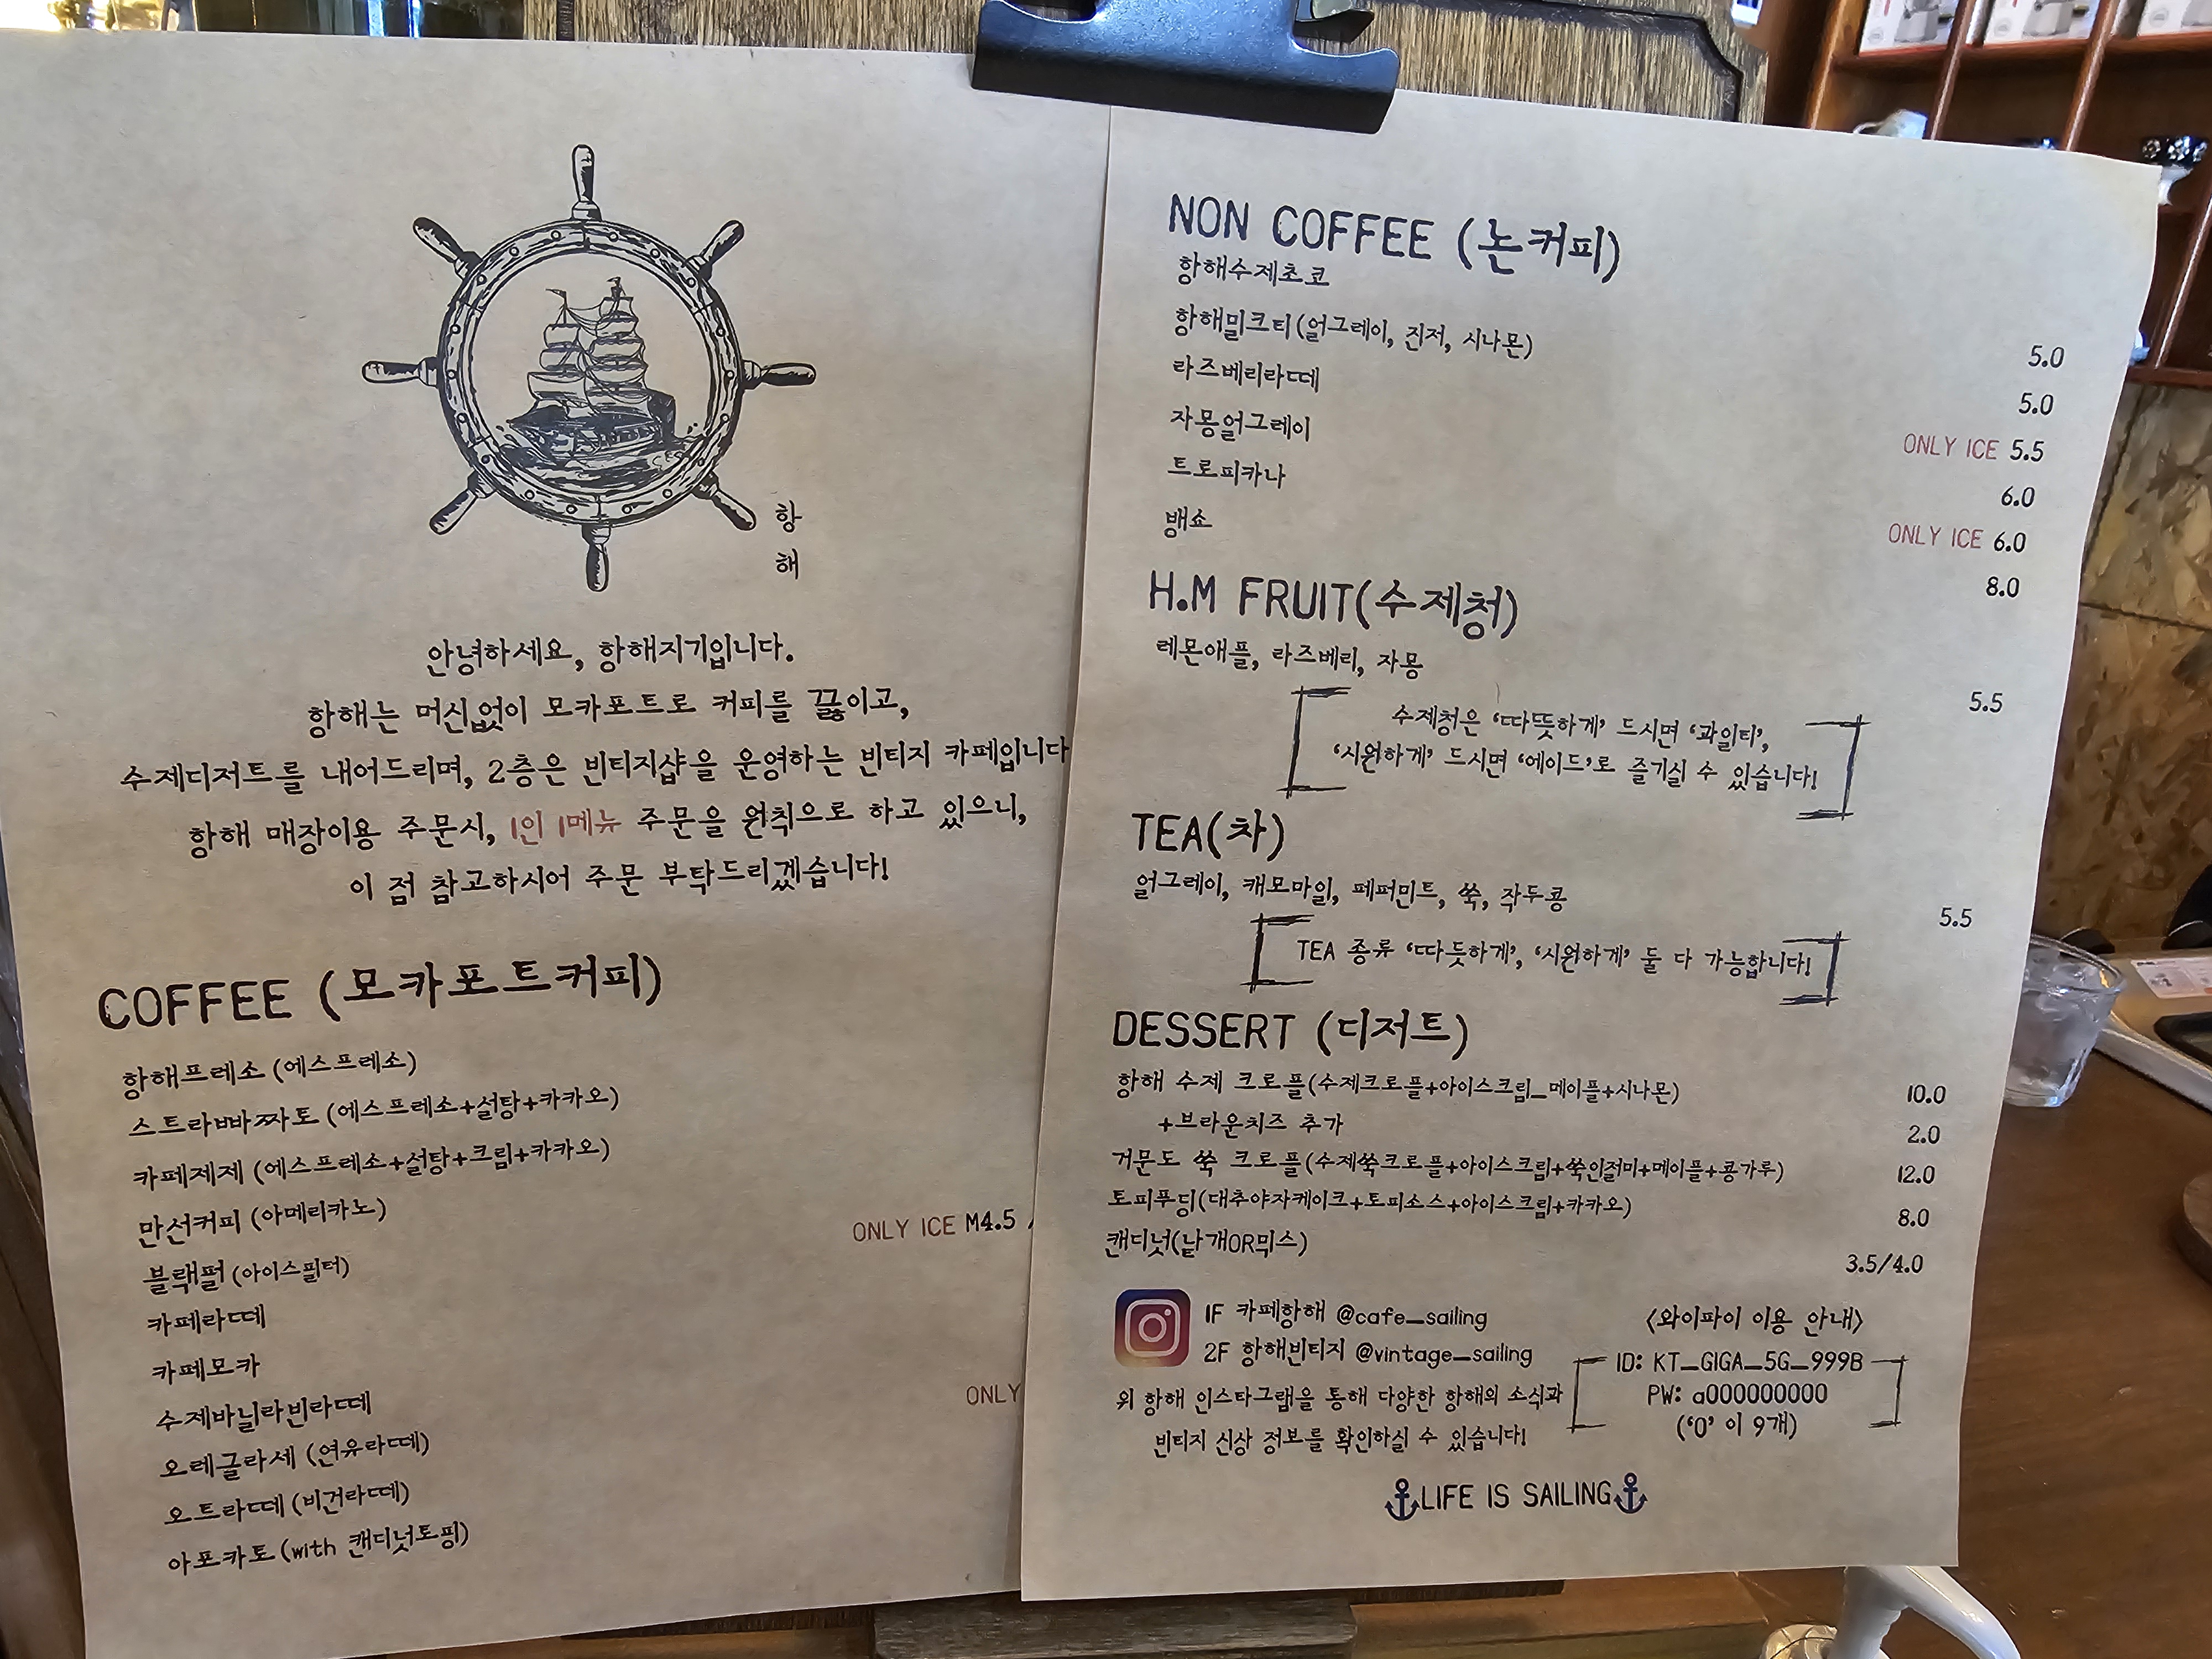 항
해
안녕하세요, 항해지기입니다.
항해는 머신없이 모카포트로 커피를 끓이고,
수제디저트를 내어드리며, 2층은 빈티지샵을 운영하는 빈티지 카페입니다
항해 매장이용 주문시, 1인 1메뉴 주문을 원칙으로 하고 있으니,
이 점 참고하시어 주문 부탁드리겠습니다!
COFFEE (모카포트커피)
항해프레소 (에스프레소)
스트라빠짜토 (에스프레소+설탕+카카오)
카페제제 (에스프레소+설탕+크림+카카오)
만선커피 (아메리카노)
ONLY ICE M4.5 /
블랙펄 (아이스필터)
카페라떼
카페모카
수제바닐라빈라떼
ONLY
오레글라세 (연유라떼)
오트라떼 (비건라떼)
아포카토 (with 캔디넛토핑)
NON COFFEE (논커피)
항해수제초코 5.0
항해밀크티(얼그레이, 진저, 시나몬) 5.0
라즈베리라떼 ONLY ICE 5.5
자몽얼그레이 6.0
트로피카나 ONLY ICE 6.0
뱅쇼 8.0
H.M FRUIT(수제청)
레몬애플, 라즈베리, 자몽 5.5
수제청은 '따뜻하게' 드시면 '과일티',
'시원하게' 드시면 '에이드'로 즐기실 수 있습니다!
TEA(차)
얼그레이, 캐모마일, 페퍼민트, 쑥, 작두콩 5.5
TEA 종류 '따듯하게', '시원하게' 둘 다 가능합니다!
DESSERT (디저트)
항해 수제 크로플(수제크로플+아이스크림_메이플+시나몬) 10.0
+브라운치즈 추가 2.0
거문도 쑥 크로플(수제쑥크로플+아이스크림+쑥인절미+메이플+콩가루) 12.0
토피푸딩(대추야자케이크+토피소스+아이스크림+카카오) 8.0
캔디넛(낱개OR믹스) 3.5/4.0
1F 카페항해 @cafe_sailing
2F 항해빈티지 @vintage_sailing
위 항해 인스타그램을 통해 다양한 항해의 소식과
빈티지 신상 정보를 확인하실 수 있습니다!
<와이파이 이용 안내>
ID: KT_GIGA_5G_999B
PW: a000000000
('0' 이 9개)
LIFE IS SAILING